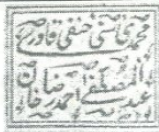 محمدی سنی حنفی قادری
عبدالمصطفی احمد رضا خان